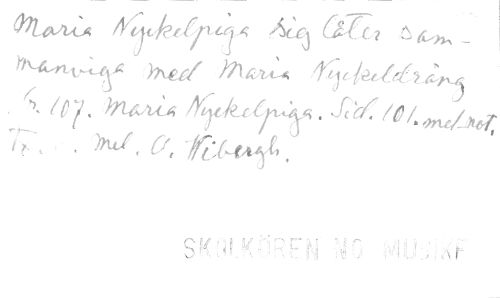 Maria Nyckelpiga sig låter sam-
manviga med Maria Nyckeldräng
Nr. 107. Maria Nyckelpiga. Sid. 101. med not.
mel. O. Wibergh.
SKOLKÖREN NO MUSIKF